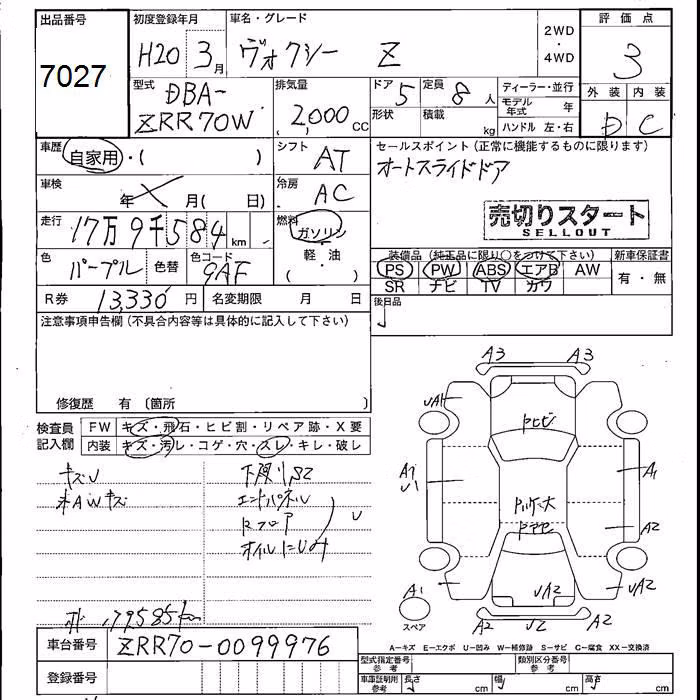 出品番号 初度登録年月 車名・グレード 評価点
7027
H20 3月 ヴォクシー Z
2WD
・
4WD
3
型式 排気量 ドア 定員 ディーラー・並行 外装 内装
DBA-
ZRR70W
2,000 CC
5 8人
形状 積載 kg
モデル年式 年
ハンドル 左・右
D C
車歴 自家用・( )
シフト AT
セールスポイント(正常に機能するものに限ります)
オートスライドドア
車検 年 月( 日)
冷房 AC
売切りスタート
SELLOUT
走行 17万9千584 km
燃料 ガソリン
・
軽・油
( )
色 パープル 色替 色コード 9AF
装備品(純正品に限り○をつけて下さい) 新車保証書
PS PW ABS エアB AW 有・無
SR ナビ TV カワ
R券 13,330円 名変期限 月 日
後日品
注意事項申告欄(不具合内容等は具体的に記入して下さい)
修復歴 有 〔箇所 〕
検査員
記入欄
FW キズ・飛石・ヒビ割・リペア跡・X要
内装 キズ・汚レ・コゲ・穴・スレ・キレ・破レ
キズU
AWキズ
エンドパネル
Rフロア
U
179585km
A3 A3
UA1
A1
U1
A1
A2
A1
UA2
UA2
スペア
A2 U2 A2
A-キズ E-エクボ U-凹み W-補修跡 S-サビ C-腐食 XX-交換済
車台番号 ZRR70-0099976
登録番号
型式指定番号 参考 類別区分番号 参考
車庫証明用 参考 長さ cm 幅 cm 高さ cm